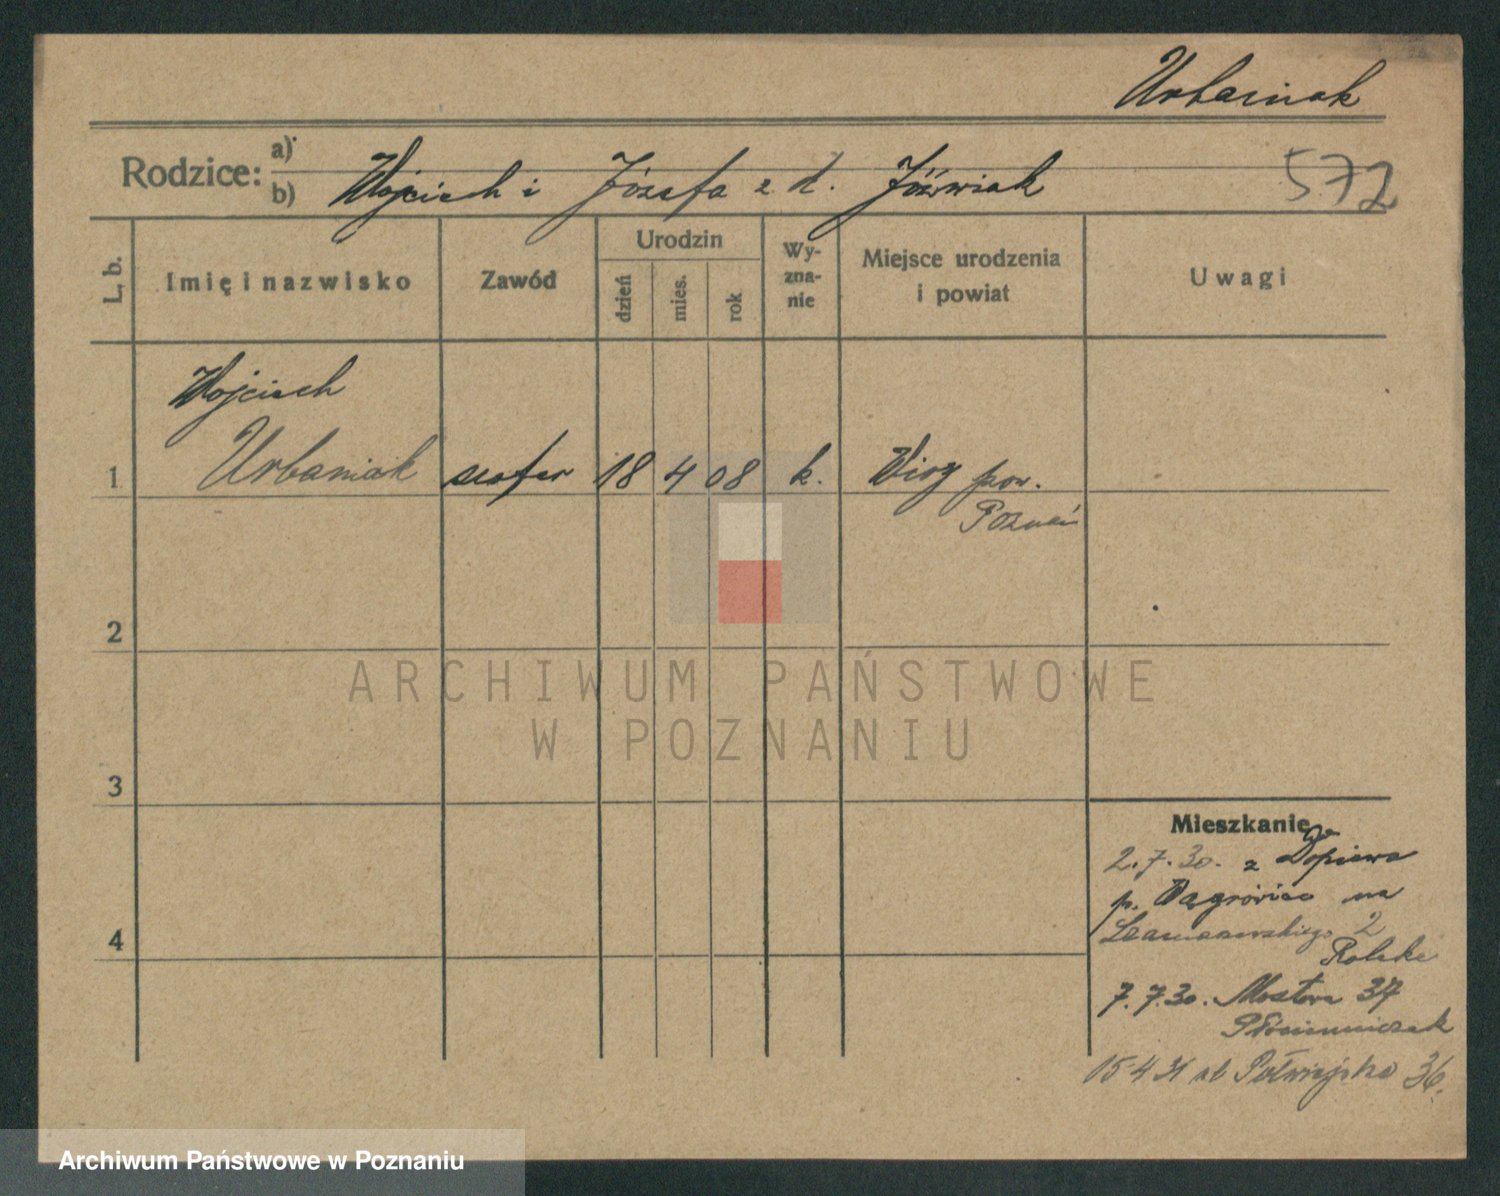 Urbaniak
Rodzice: a)
b) Wojciech i Józefa z d. Jóźwiak
572
L. b.
Imię i nazwisko
Zawód
Urodzin
dzień
mies.
rok
Wy-
zna-
nie
Miejsce urodzenia
i powiat
Uwagi
Wojciech
1 Urbaniak szofer 18 4 08 k. Wiry pow.
Poznań
2
3
4
Mieszkanie
2.7.30. z Dopiewa
p. Wągrówiec na
2
7.7.30. Mostowa 37
15 4 31 ab Półwiejska 36.
ARCHIWUM PAŃSTWOWE
W POZNANIU
Archiwum Państwowe w Poznaniu